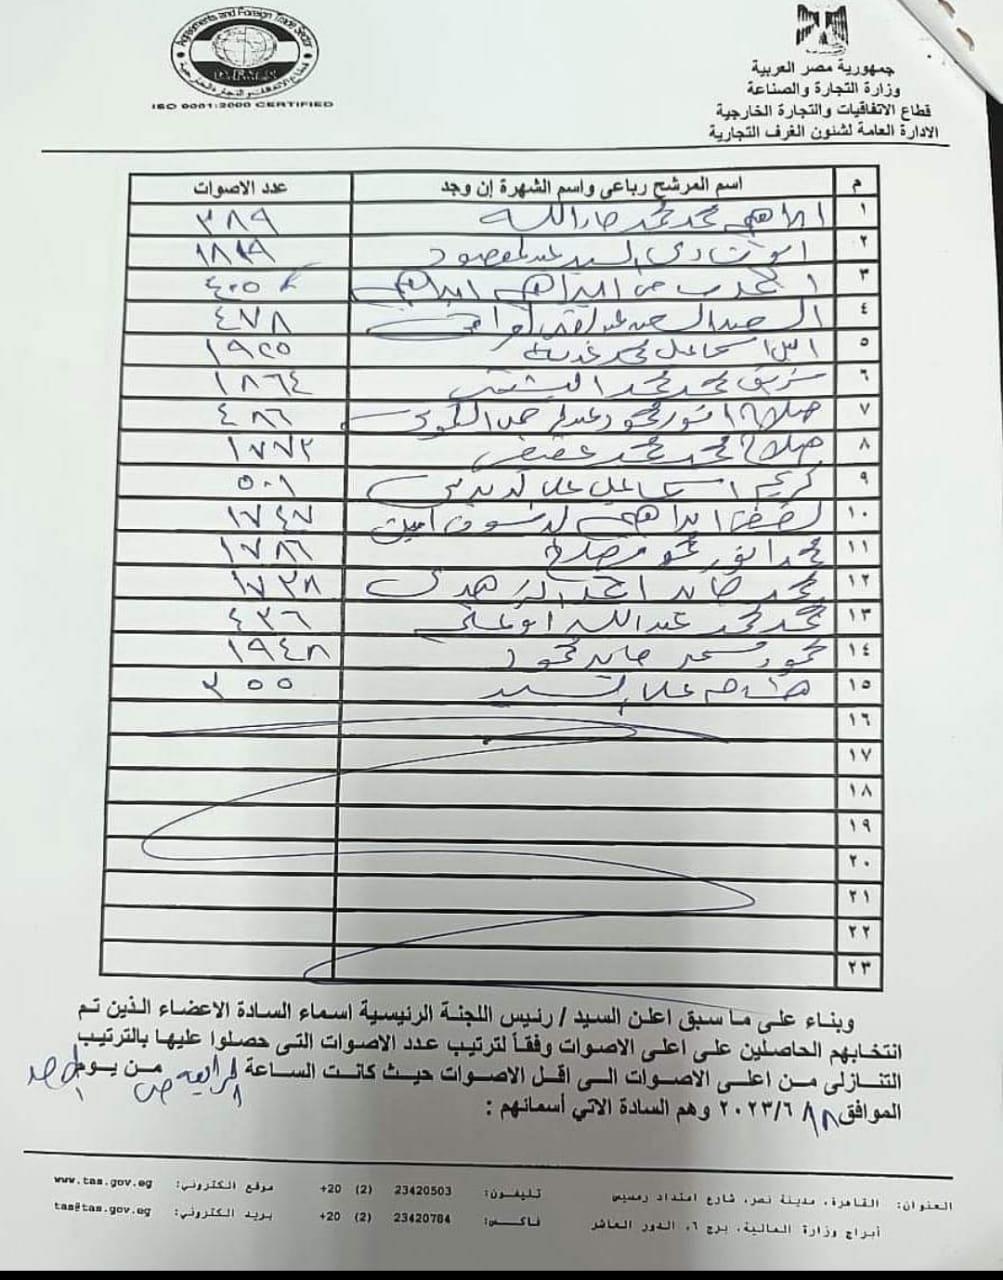 Agreements and Foreign Trade Sector
قطاع الاتفاقيات والتجارة الخارجية
ISO 9001:2000 CERTIFIED
جمهورية مصر العربية
وزارة التجارة والصناعة
قطاع الاتفاقيات والتجارة الخارجية
الادارة العامة لشئون الغرف التجارية
م اسم المرشح رباعى واسم الشهرة إن وجد عدد الاصوات
١ ابراهيم محمد محمد جاد الله ٣٨٩
٢ السيد عبد المقصود
٣ ابراهيم ٤٠٥
٤ السعيد ٤٧٨
٥ اسماعيل محمد ١٩٢٥
٦ شريف محمد محمد ١٨٦٤
٧ صلاح انور محمود عبد الرحمن ٤٨٦
٨ صلاح محمد محمد عفيفى ١٧٧٢
٩ كريم اسماعيل على ٥٠١
١٠ ابراهيم الدسوقى امين ١٧٤٧
١١ محمد انور ١٧٨٦
١٢ محمد حامد احمد الزهدى ١٧٣٨
١٣ محمد محمد عبد الله ابو على ٤٣٦
١٤ محمود مسعد حامد محمود ١٩٤٨
١٥ هشام على السيد ٣٥٥
١٦
١٧
١٨
١٩
٢٠
٢١
٢٢
٢٣
وبناء على ما سبق اعلن السيد / رئيس اللجنة الرئيسية اسماء السادة الاعضاء الذين تم
انتخابهم الحاصلين على اعلى الاصوات وفقاً لترتيب عدد الاصوات التى حصلوا عليها بالترتيب
التنازلى من اعلى الاصوات الى اقل الاصوات حيث كانت الساعة الرابعة ص من يوم الاحد
الموافق ١٨ /٢٠٢٣/٦ وهم السادة الاتي أسمائهم :
العنوان: القاهرة، مدينة نصر، شارع امتداد رمسيس تليفون: 23420503 (2) 20+ موقع الكتروني: www.tas.gov.eg
أبراج وزارة المالية، برج ٦، الدور العاشر فاكس: 23420784 (2) 20+ بريد الكتروني: tas@tas.gov.eg